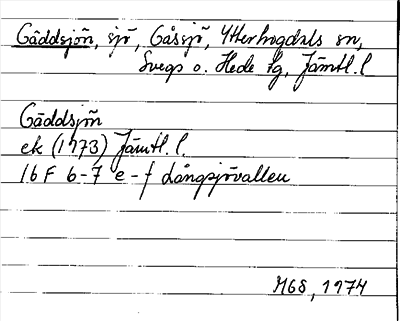 Gäddsjön, sjö, Gåssjö, Ytterhogdals sn,
Svegs o. Hede tg, Jämtl. l
Gäddsjön
ek (1973) Jämtl. l.
16F 6-7 e-f Långsjövallen
MGS, 1974